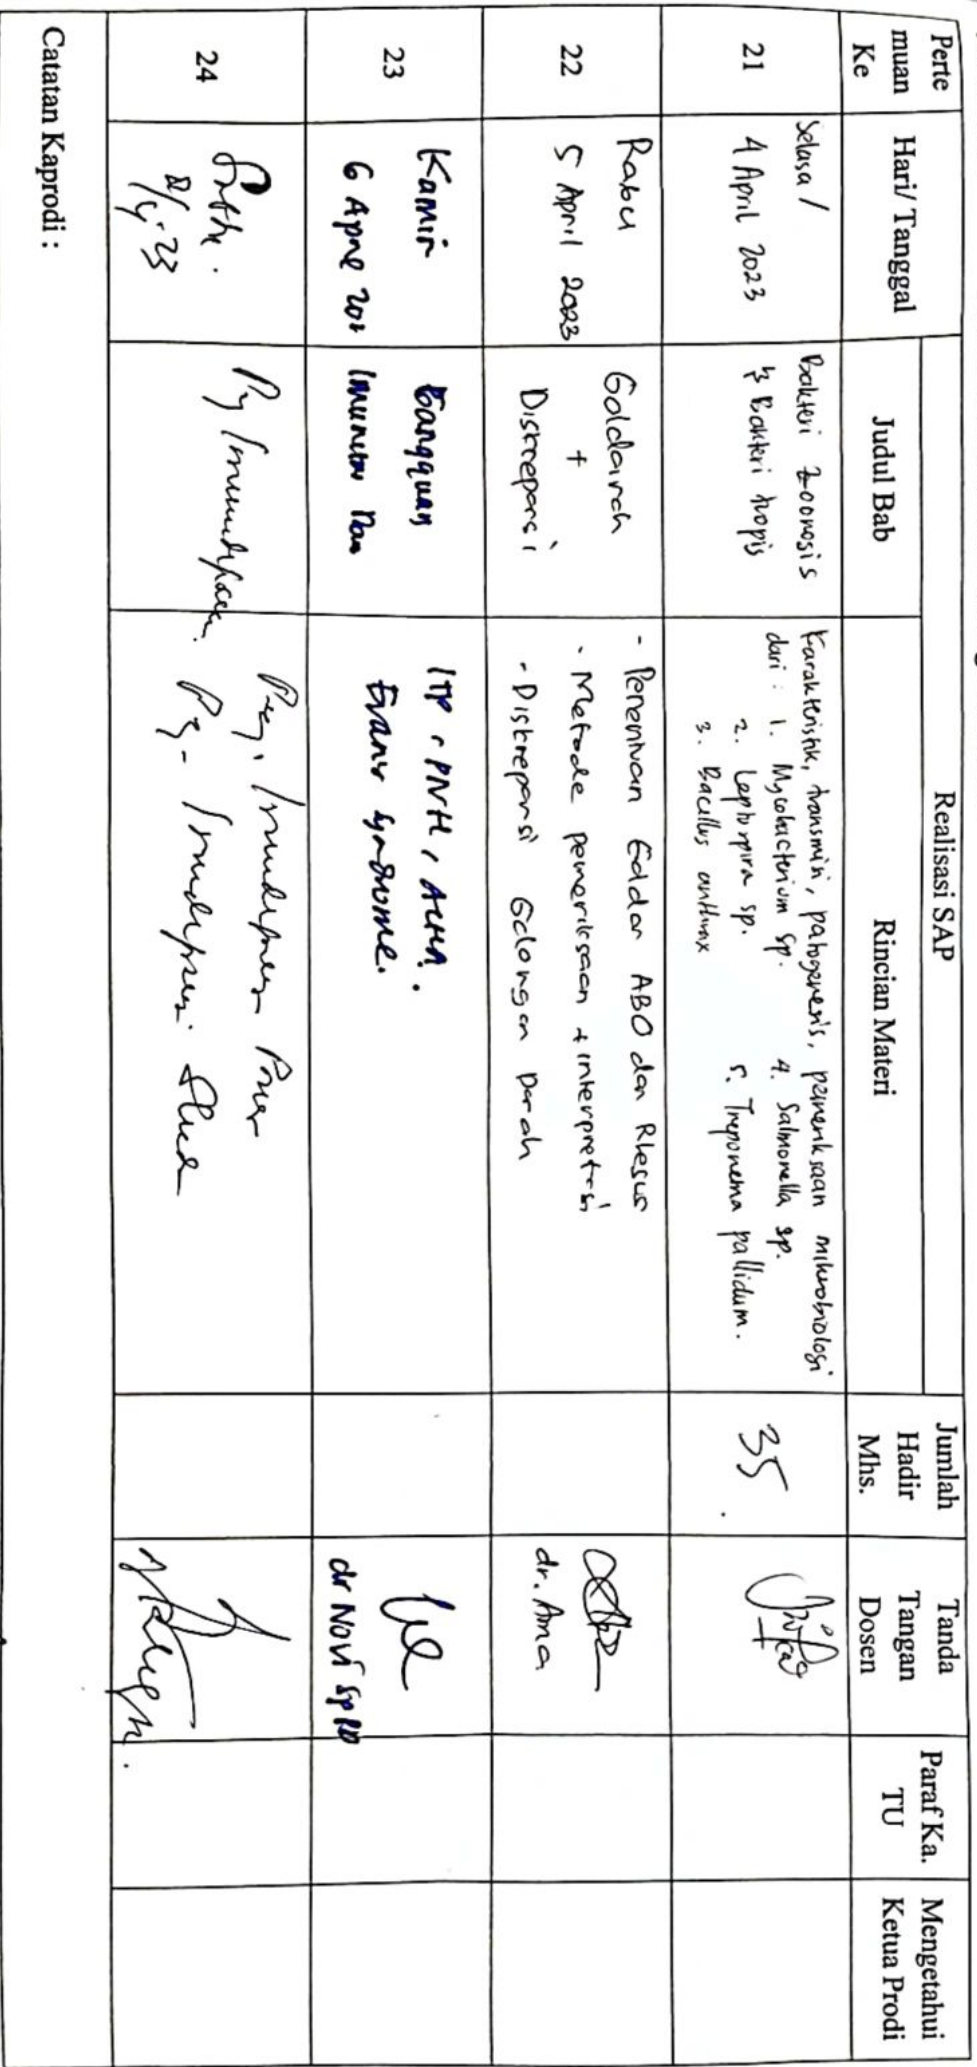 Perte
muan
Ke
Hari/ Tanggal
Realisasi SAP
Judul Bab
Rincian Materi
Jumlah
Hadir
Mhs.
Tanda
Tangan
Dosen
Paraf Ka.
TU
Mengetahui
Ketua Prodi
21
Selasa /
4 April 2023
Bakteri Zoonosis
& Bakteri tropis
Karakteristik, transmisi, patogenesis, pemeriksaan mikrobiologi
dari : 1. Mycobacterium sp. 4. Salmonella sp.
2. Leptospira sp. 5. Treponema pallidum.
3. Bacillus anthrax
35
22
Rabu
5 April 2023
Goldarah
+
Diskrepansi
- Penentuan Goldar ABO dan Rhesus
- Metode pemeriksaan + interpretasi
- Diskrepansi Golongan Darah
dr. Ama
23
Kamis
6 April 202
Gangguan
Imunitas
ITP, PNH, AIHA.
Evans Syndrome.
dr Novi SpPD
24
Catatan Kaprodi :